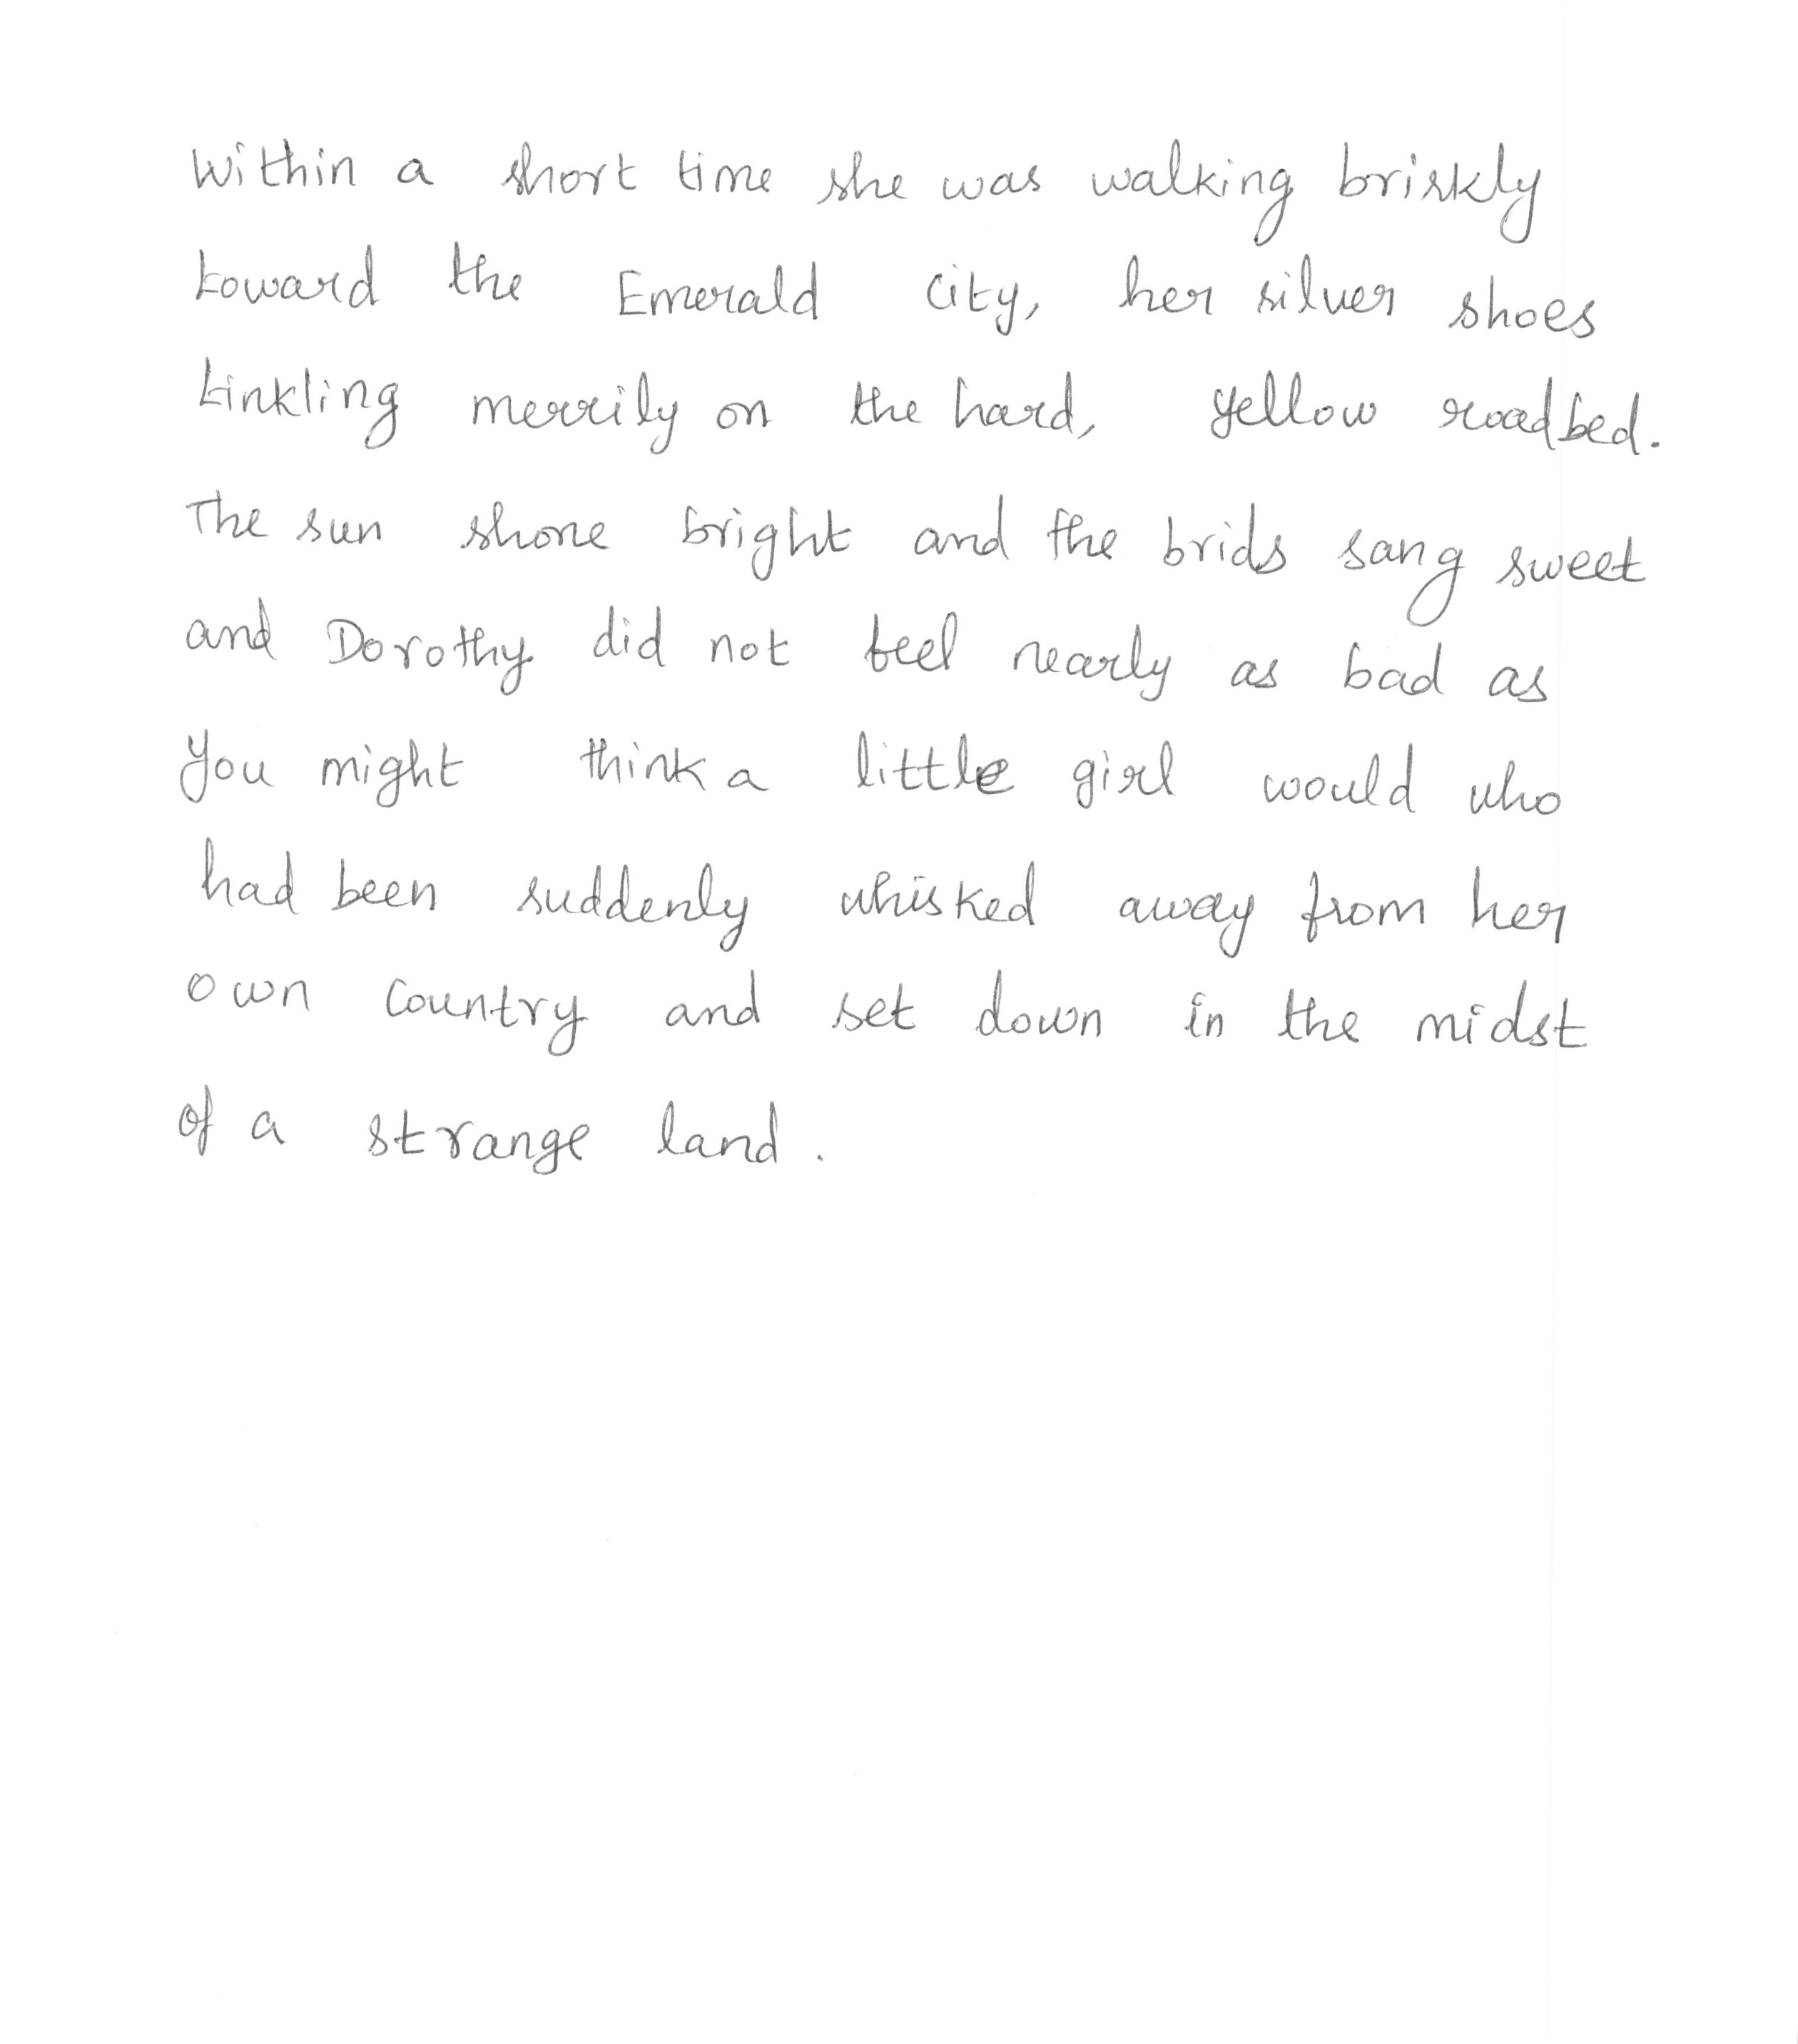 Within a short time she was walking briskly
toward the Emerald City, her silver shoes
tinkling merrily on the hard, yellow roadbed.
The sun shone bright and the brids sang sweet
and Dorothy did not feel nearly as bad as
you might think a little girl would who
had been suddenly whisked away from her
own country and set down in the midst
of a strange land.